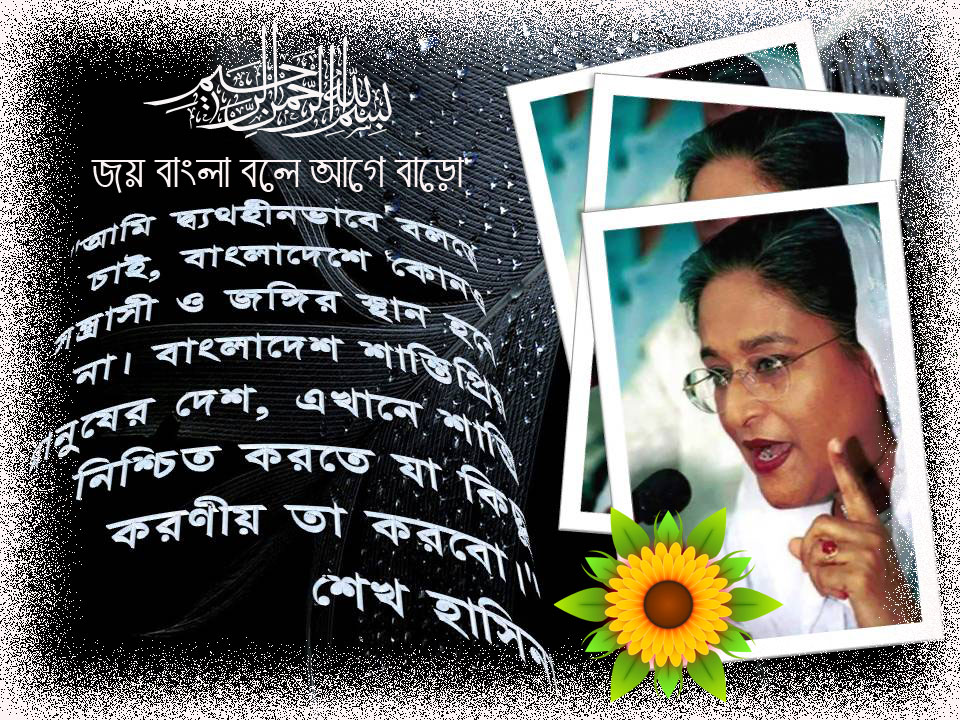 بسم الله الرحمن الرحيم
জয় বাংলা বলে আগে বাড়ো
"আমি দ্ব্যথহীনভাবে বলতে
চাই, বাংলাদেশে কোনও
সন্ত্রাসী ও জঙ্গির স্থান হবে
না। বাংলাদেশ শান্তিপ্রিয়
মানুষের দেশ, এখানে শান্তি
নিশ্চিত করতে যা কিছু
করণীয় তা করবো।"
শেখ হাসিনা